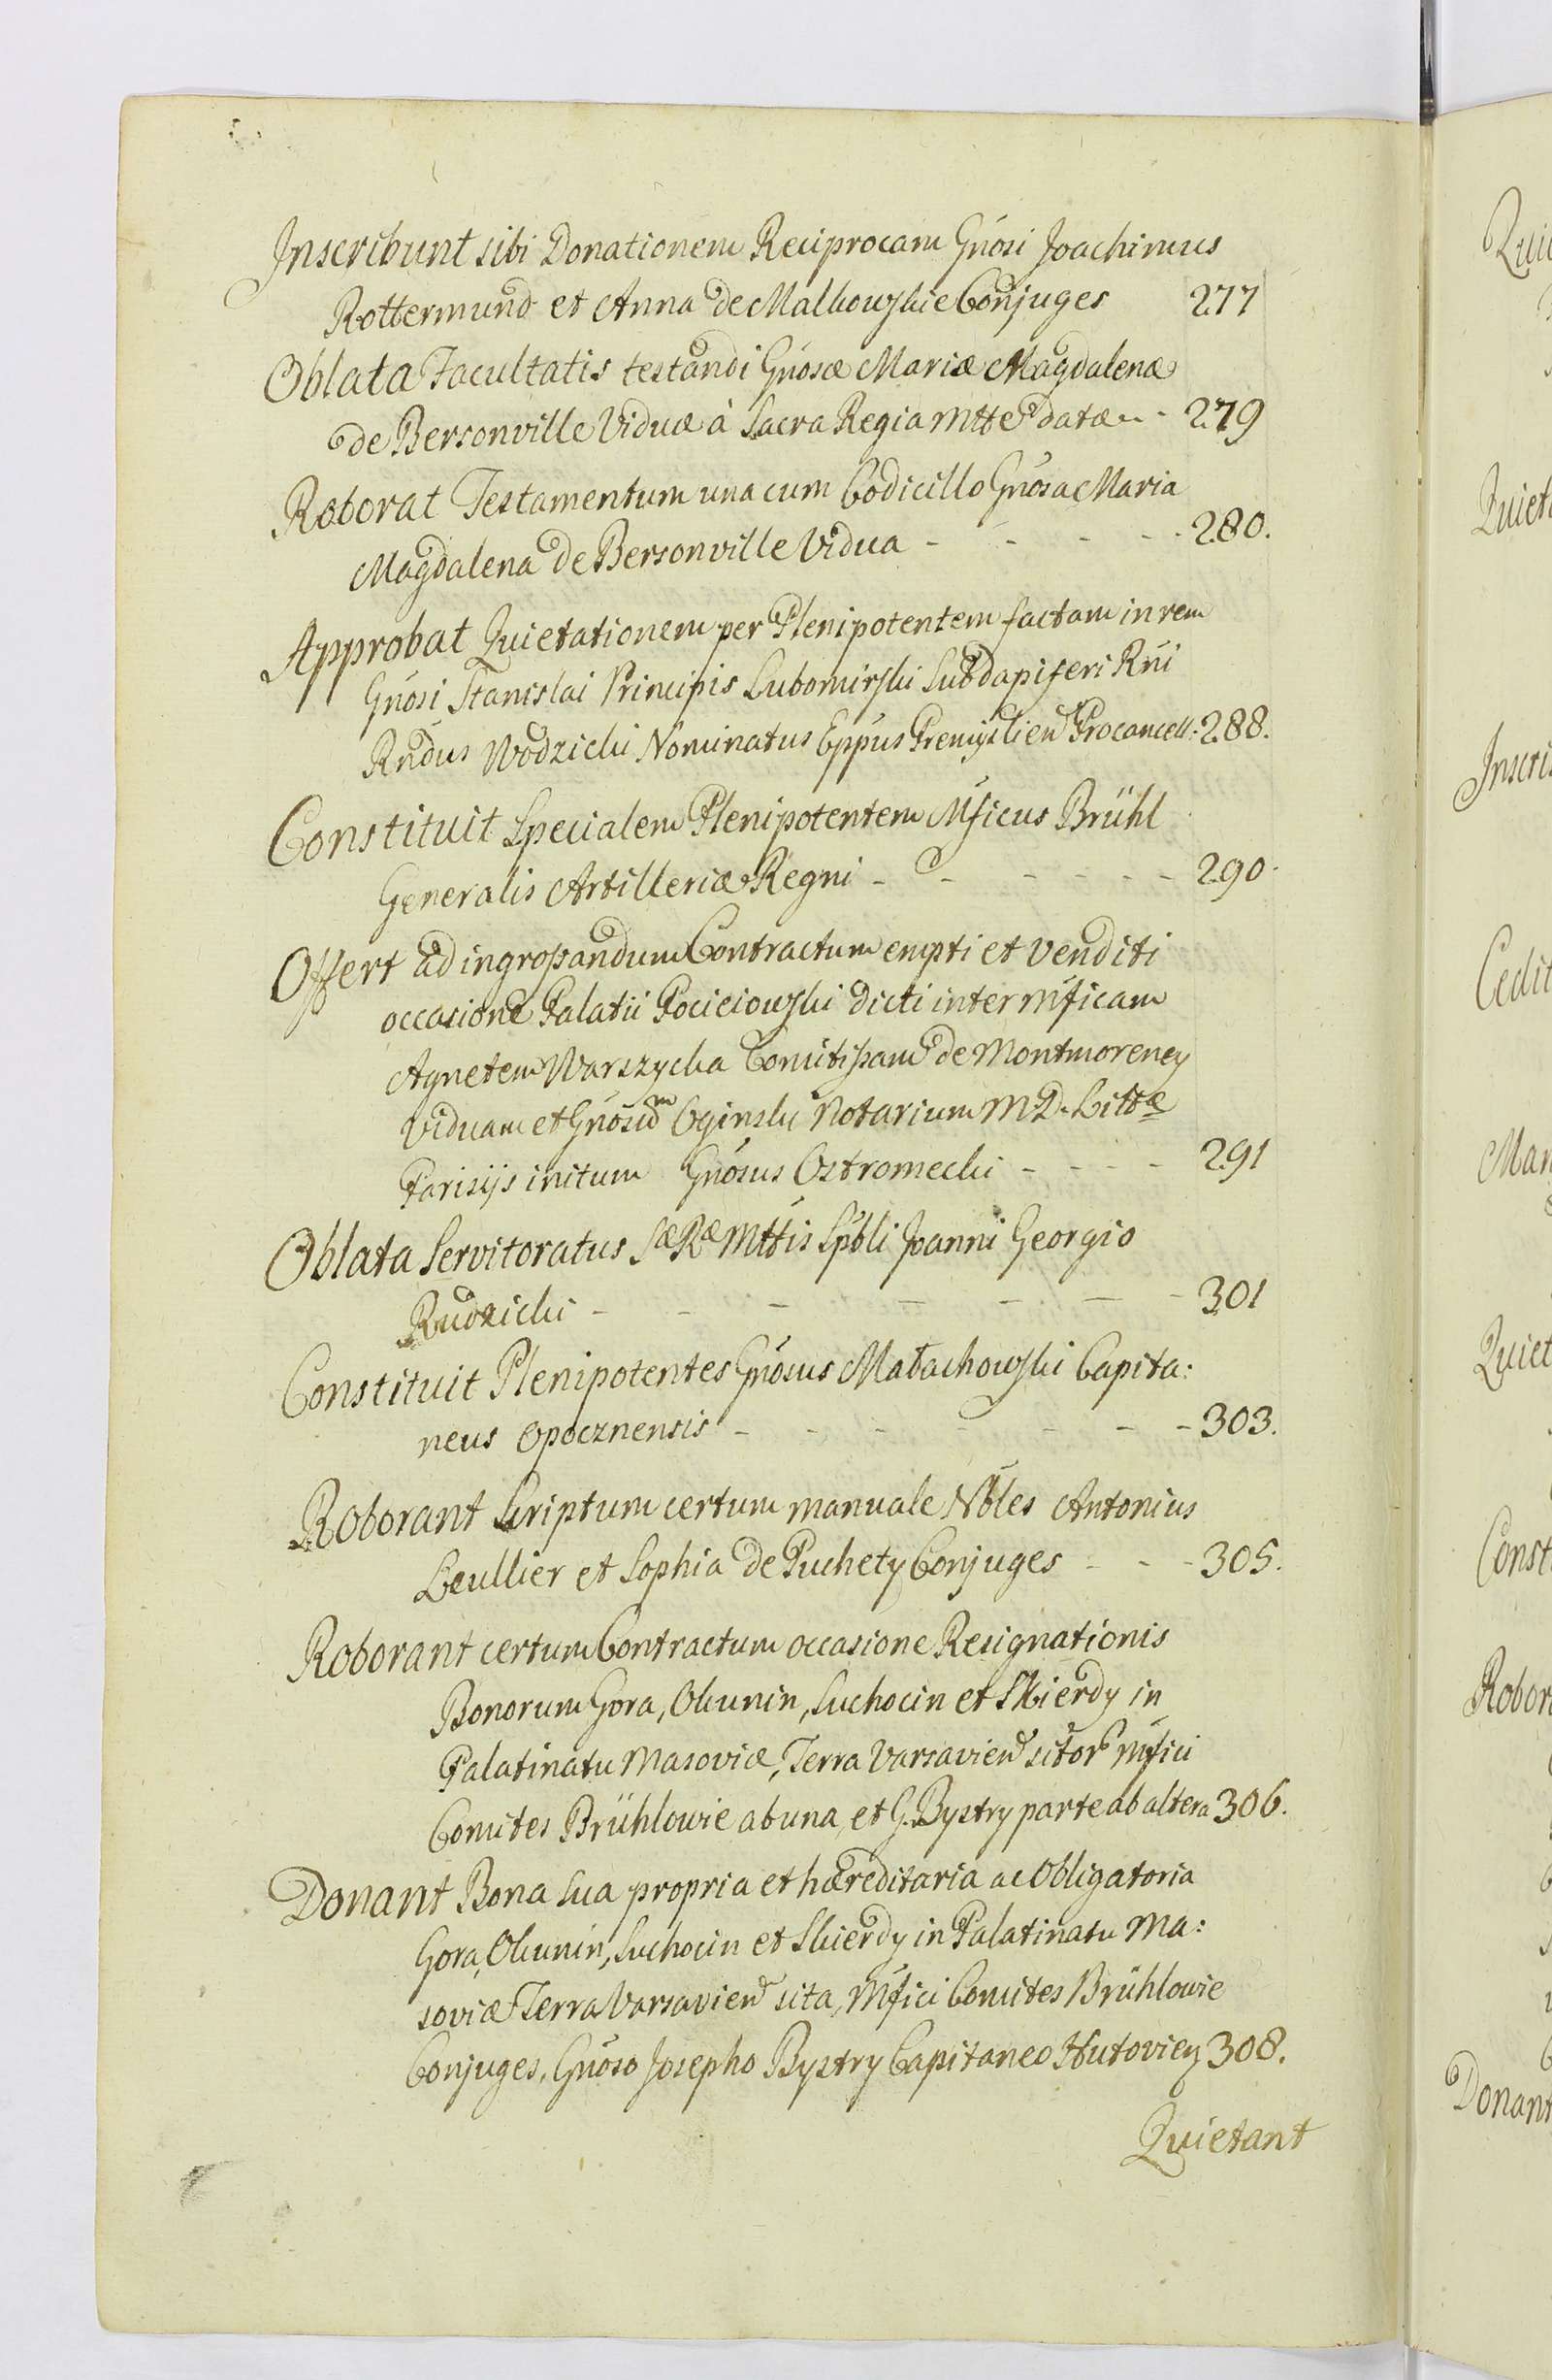 Inscribunt sibi Donationem Reciprocam Gnosi Joachimus
Rottermund et Anna de Malkowskie Conjuges 277
Oblata Facultatis testandi Gnosæ Mariæ Magdalenæ
de Bersonville Viduæ à Sacra Regia Mtte datæ - - 279
Roborat Testamentum una cum Codicillo Gnosa Maria
Magdalena de Bersonville Vidua - - - - - 280.
Approbat Quietationem per Plenipotentem factam in rem
Gnosi Stanislai Principis Lubomirski Subdapiferi Rni
Rndus Wodzicki Nominatus Eppus Premyslien Procancell: 288.
Constituit Specialem Plenipotentem Mficus Brühl
Generalis Artilleriæ Regni - - - - - - 290.
Offert ad ingrossandum Contractum empti et venditi
occasione Palatii Pocieiowski dicti inter Mficam
Agnetem Warszycka Comitissam de Montmorency
Viduam et Gnosum Oginski Notarium M. D. Littæ
Parisijs initum Gnosus Ostromecki - - - - 291
Oblata Servitoratus Sæ Ræ Mttis Spbli Joanni Georgio
Rudzicki - - - - - - - 301
Constituit Plenipotentes Gnosus Małachowski Capita:
neus Opocznensis - - - - - - - 303.
Roborant Scriptum certum manuale Nbles Antonius
Leullier et Sophia de Puchety Conjuges - - - 305.
Roborant certum Contractum occasione Resignationis
Bonorum Gora, Okunin, Suchocin et Skierdy in
Palatinatu Masoviæ, Terra Varsavien sitor Mfici
Comites Brühlowie ab una, et G. Bystry parte ab altera 306.
Donant Bona sua propria et hæreditaria ac Obligatoria
Gora, Okunin, Suchocin et Skierdy in Palatinatu Ma:
soviæ Terra Varsavien sita, Mfici Comites Brühlowie
Conjuges, Gnoso Josepho Bystry Capitaneo 308.
Quietant